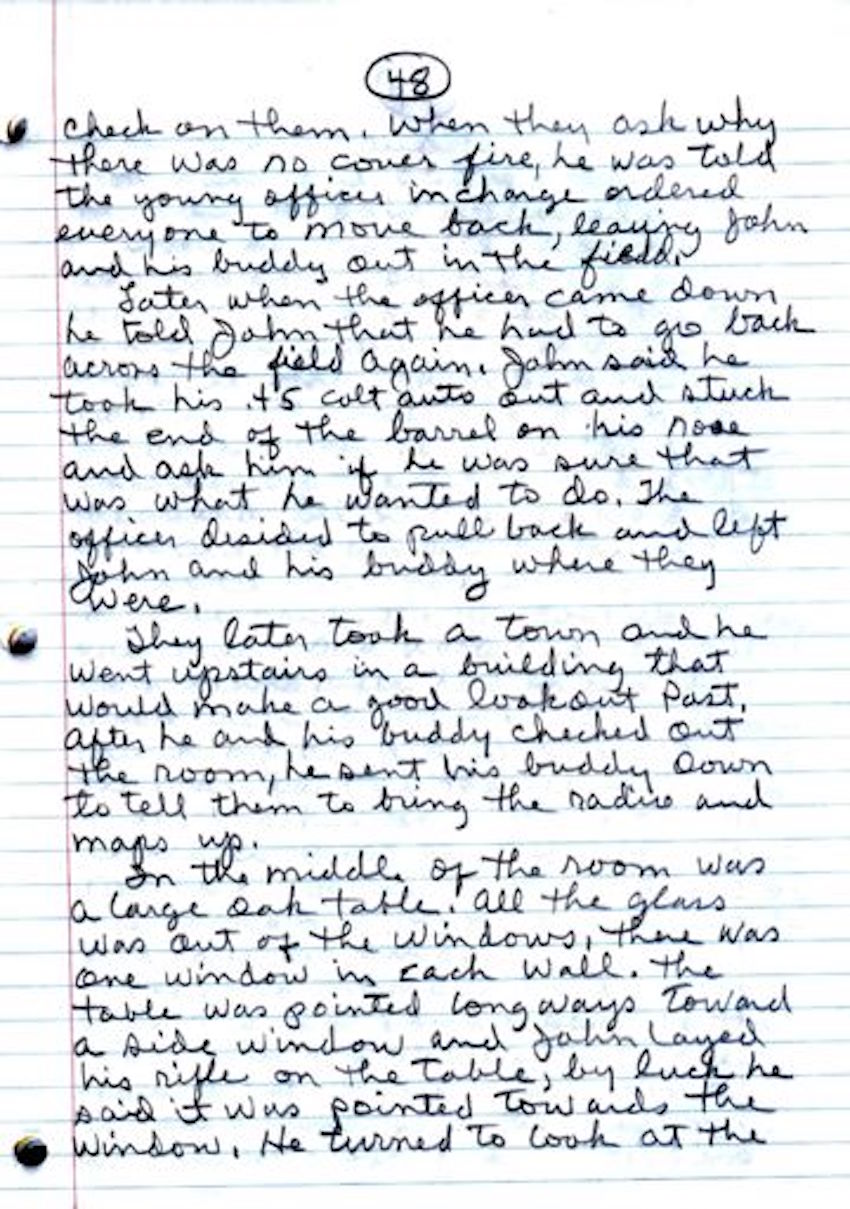 48
check on them. When they ask why
there was no cover fire, he was told
the young officer incharge ordered
everyone to move back, leaving John
and his buddy out in the field.
Later when the officer came down
he told John that he had to go back
across the field again. John said he
took his .45 colt auto out and stuck
the end of the barrel on his nose
and ask him if he was sure that
was what he wanted to do. The
officer desided to pull back and left
John and his buddy where they
were.
They later took a town and he
went upstairs in a building that
would make a good lookout Post.
After he and his buddy checked out
the room, he sent his buddy down
to tell them to bring the radio and
maps up.
In the middle of the room was
a large oak table. All the glass
was out of the windows, there was
one window in each wall. The
table was pointed longways toward
a side window and John layed
his rifle on the table, by luck he
said it was pointed towards the
window. He turned to look at the